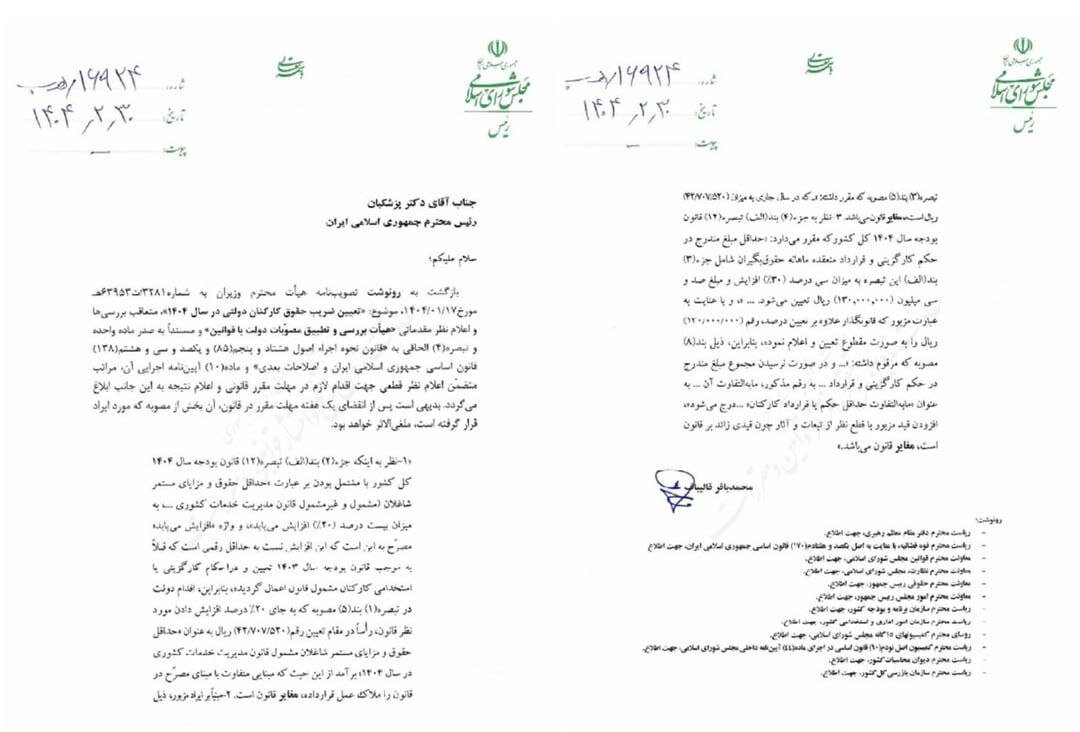 جمهوری اسلامی ایران
مجلس شورای اسلامی
رئیس
باسمه تعالی
شماره: ۱۶۹۲۴/هـ ب
تاریخ: ۱۴۰۴/۲/۳۰
پیوست: ــ
جناب آقای دکتر پزشکیان
رئیس محترم جمهوری اسلامی ایران
سلام علیکم؛
بازگشت به رونوشت تصویب‌نامه هیأت محترم وزیران به شماره۳۲۸۱/ت۶۳۹۵۳هـ
مورخ۱۴۰۴/۰۱/۱۷، موضوع: «تعیین ضریب حقوق کارکنان دولتی در سال ۱۴۰۴»، متعاقب بررسی‌ها
و اعلام نظر مقدماتی «هیأت بررسی و تطبیق مصوّبات دولت با قوانین» و مستنداً به صدر ماده واحده
و تبصره(۴) الحاقی به «قانون نحوه اجراء اصول هشتاد و پنجم(۸۵) و یکصد و سی و هشتم(۱۳۸)
قانون اساسی جمهوری اسلامی ایران و اصلاحات بعدی» و ماده(۱۰) آیین‌نامه اجرایی آن، مراتب
متضمّن اعلام نظر قطعی جهت اقدام لازم در مهلت مقرر قانونی و اعلام نتیجه به این جانب ابلاغ
می‌گردد. بدیهی است پس از انقضای یک هفته مهلت مقرر در قانون، آن بخش از مصوبه که مورد ایراد
قرار گرفته است، ملغی‌الاثر خواهد بود.
«۱-نظر به اینکه جزء(۲) بند(الف) تبصره(۱۲) قانون بودجه سال ۱۴۰۴
کل کشور با مشتمل بودن بر عبارت «حداقل حقوق و مزایای مستمر
شاغلان (مشمول و غیرمشمول قانون مدیریت خدمات کشوری ...، به
میزان بیست درصد (۲۰٪) افزایش می‌یابد»، و واژه «افزایش می‌یابد»
مصرّح به این است که این افزایش نسبت به حداقل رقمی است که قبلاً
به موجب قانون بودجه سال ۱۴۰۳ تعیین و دراحکام کارگزینی یا
استخدامی کارکنان مشمول قانون اعمال گردیده، بنابراین، اقدام دولت
در تبصره(۱) بند(۵) مصوبه که به جای ۲۰٪ درصد افزایش دادن مورد
نظر قانون، رأساً در مقام تعیین رقم(۴۲/۷۰۷/۵۲۰) ریال به عنوان «حداقل
حقوق و مزایای مستمر شاغلان مشمول قانون مدیریت خدمات کشوری
در سال ۱۴۰۴» برآمد از این حیث که مبنایی متفاوت با مبنای مصرّح در
قانون را ملاک عمل قرارداده، مغایر قانون است. ۲-مبنیاً بر ایراد مزبور، ذیل
جمهوری اسلامی ایران
مجلس شورای اسلامی
رئیس
باسمه تعالی
شماره: ۱۶۹۲۴/هـ ب
تاریخ: ۱۴۰۴/۲/۳۰
پیوست: ــ
تبصره(۳) بند(۵) مصوبه که مقرر داشته: «ـ که در سال جاری به میزان (۴۲/۷۰۷/۵۲۰)
ریال است»، مغایر قانون می‌باشد. ۳- نظر به جزء(۴) بند(الف) تبصره(۱۲) قانون
بودجه سال ۱۴۰۴ کل کشور که مقرر می‌دارد: «حداقل مبلغ مندرج در
حکم کارگزینی و قرارداد منعقده ماهانه حقوق‌بگیران شامل جزء(۳)
بند(الف) این تبصره به میزان سی درصد (۳۰٪) افزایش و مبلغ صد و
سی میلیون (۱۳۰,۰۰۰,۰۰۰) ریال تعیین می‌شود. ... »، و با عنایت به
عبارت مزبور که قانونگذار علاوه بر تعیین درصد، رقم (۱۳۰/۰۰۰/۰۰۰)
ریال را به صورت مقطوع تعیین و اعلام نموده، بنابراین، ذیل بند(۸)
مصوبه که مرقوم داشته: «... و در صورت نرسیدن مجموع مبلغ مندرج
در حکم کارگزینی و قرارداد ... به رقم مذکور، مابه‌التفاوت آن ... به
عنوان «مابه‌التفاوت حداقل حکم یا قرارداد کارکنان» ...درج می‌شود»،
افزودن قید مزبور با قطع نظر از تبعات و آثار چون قیدی زائد بر قانون
است، مغایر قانون می‌باشد.»
محمدباقر قالیباف
رونوشت:
- ریاست محترم دفتر مقام معظم رهبری، جهت اطلاع.
- ریاست محترم قوه قضائیه، با عنایت به اصل یکصد و هفتادم(۱۷۰) قانون اساسی جمهوری اسلامی ایران، جهت اطلاع
- معاونت محترم قوانین مجلس شورای اسلامی، جهت اطلاع.
- معاونت محترم نظارت، مجلس شورای اسلامی، جهت اطلاع.
- معاونت محترم حقوقی رییس جمهور، جهت اطلاع.
- معاونت محترم امور مجلس رییس جمهور، جهت اطلاع.
- ریاست محترم سازمان برنامه و بودجه کشور، جهت اطلاع.
- ریاست محترم سازمان امور اداری و استخدامی کشور، جهت اطلاع.
- روسای محترم کمیسیونهای ۱۵گانه مجلس شورای اسلامی، جهت اطلاع.
- ریاست محترم کمیسیون اصل نودم(۹۰) قانون اساسی در اجرای ماده(۴۴) آیین‌نامه داخلی مجلس شورای اسلامی، جهت اطلاع.
- ریاست محترم دیوان محاسبات کشور، جهت اطلاع.
- ریاست محترم سازمان بازرسی کل کشور، جهت اطلاع.